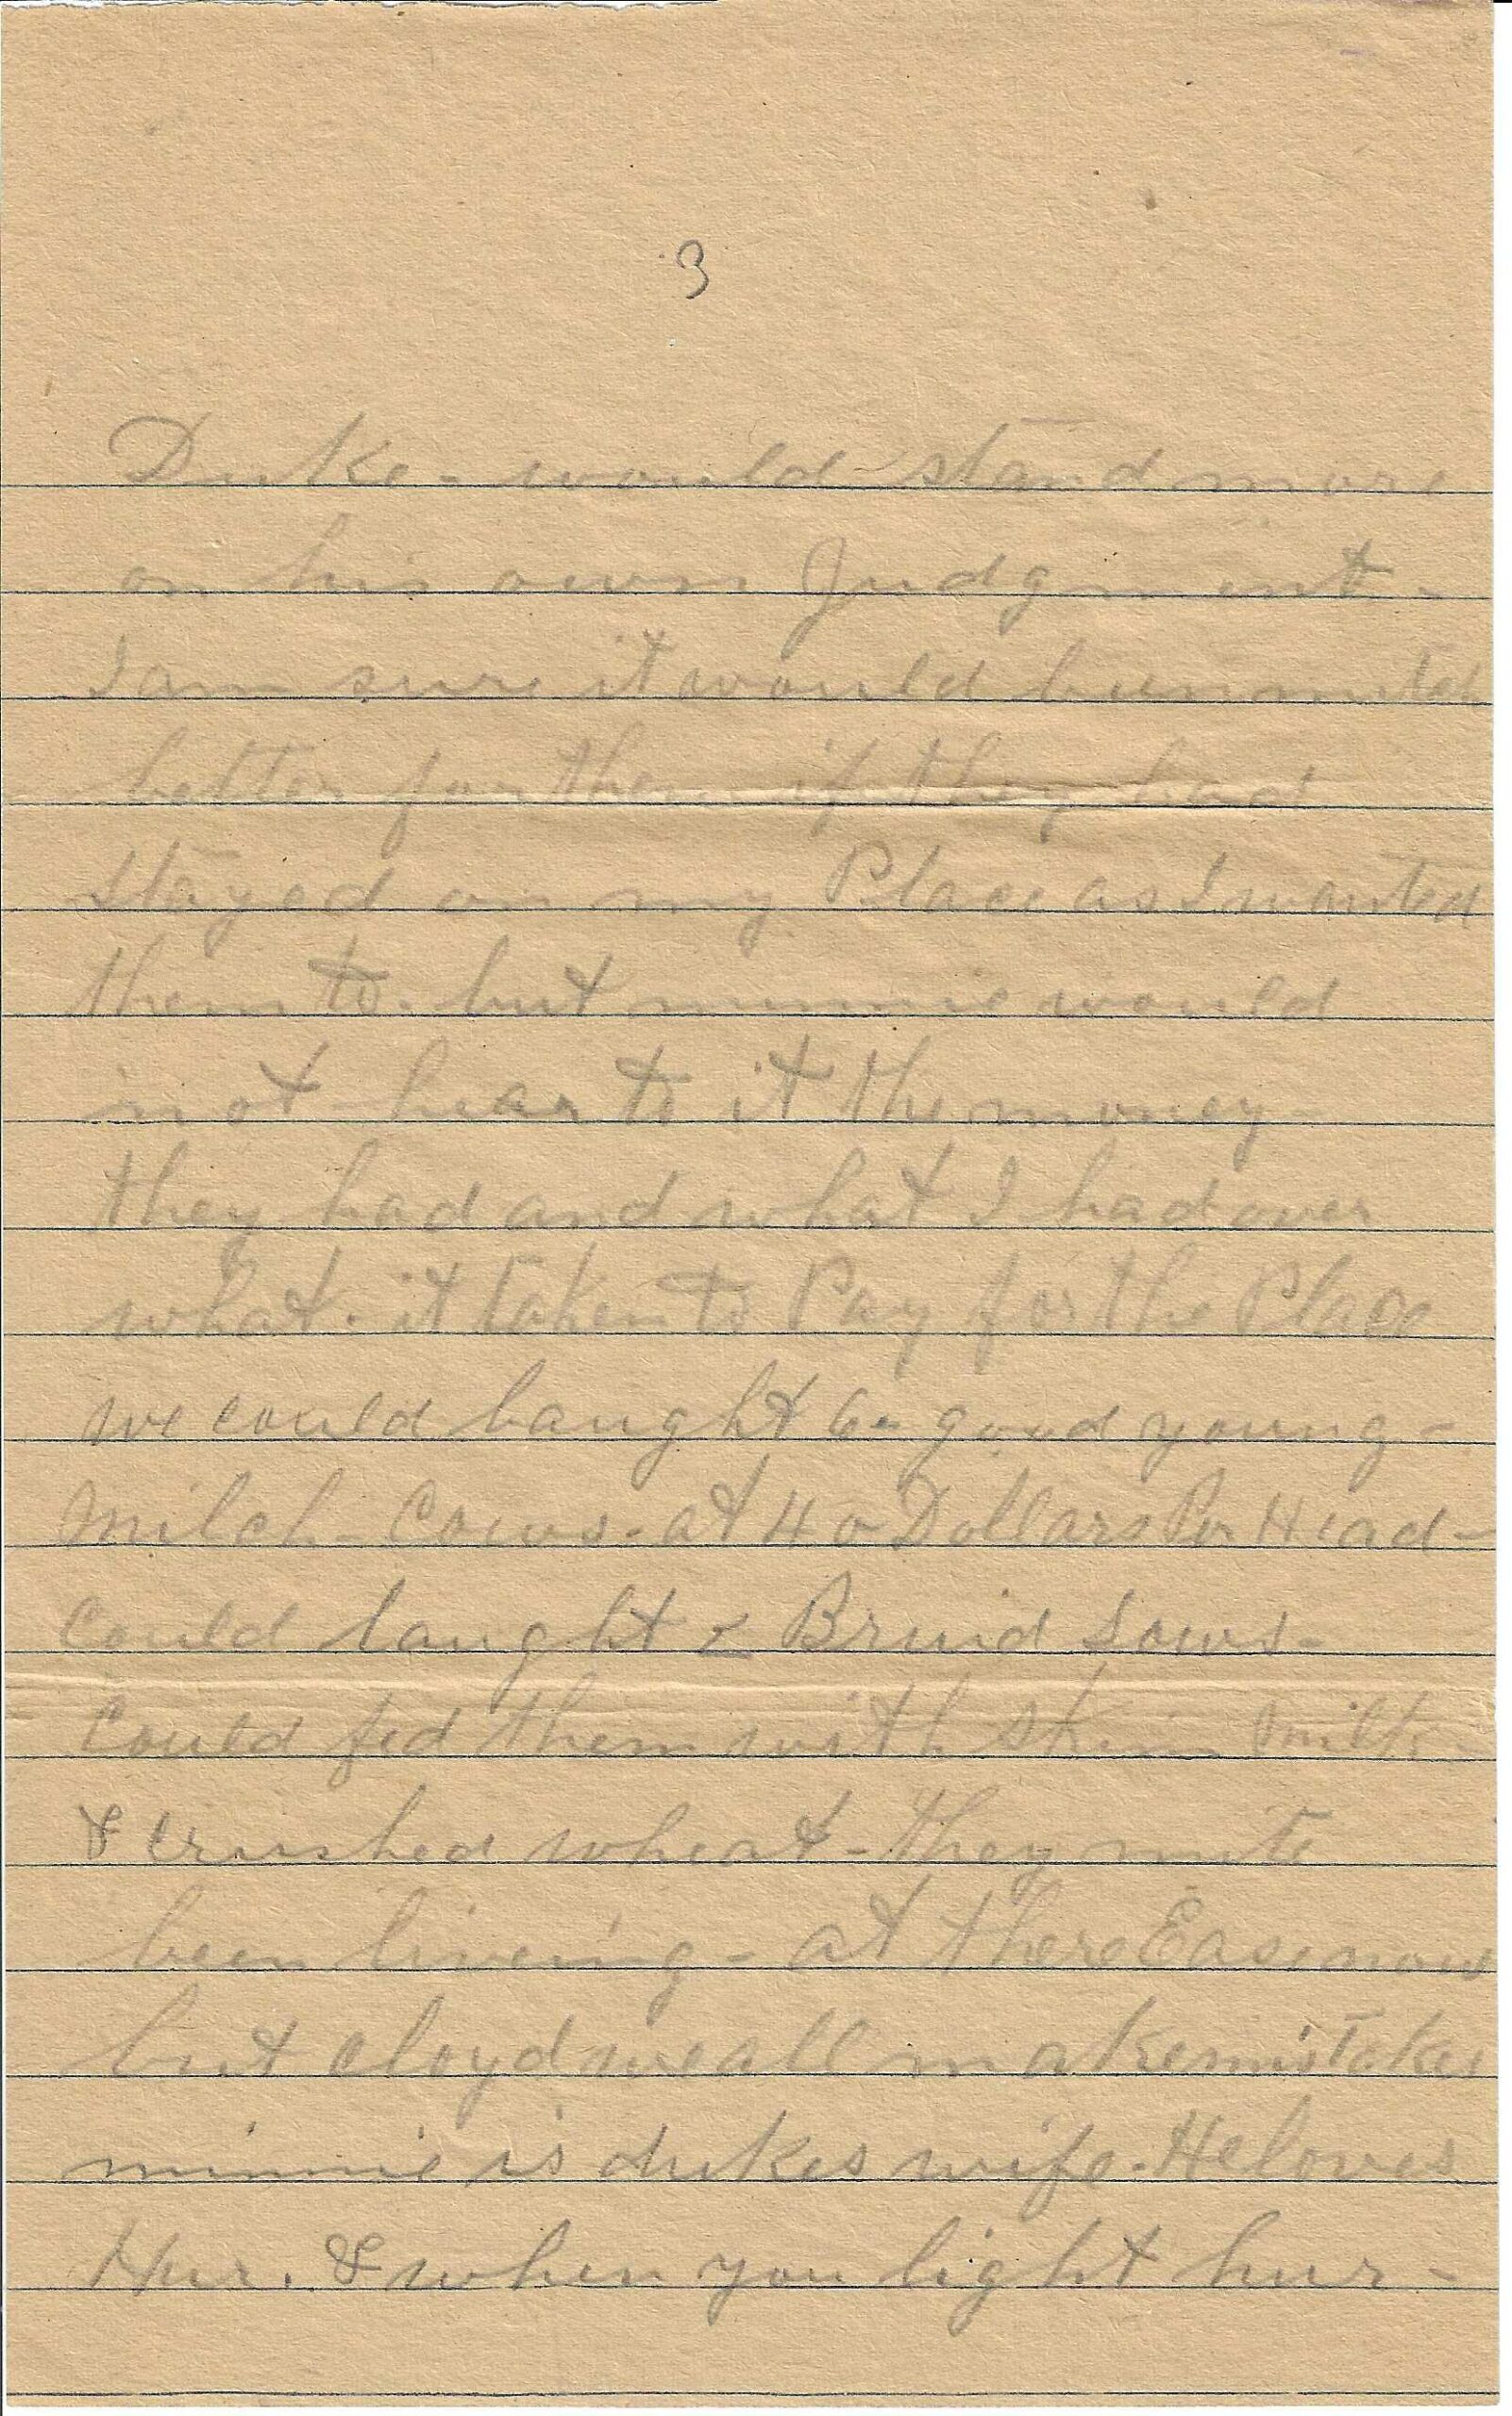 3
Duke - would - stand more
on his own Judgment -
I am sure it would bun mutch
better for them if they had
stayed on my Place as I wanted
them to. but minnie would
not hear to it the money -
they had and what I had over
what. it taken to Pay for the Place
we could baught 6 - good young -
Milch - Cows - at 40 Dollars Per Head -
Could baught 2 Bruid Sows -
Could fed them with skim milk -
& crushed wheat - they mite
been liveing - at there Ease now
but cloyd we all make mistakes
minnie is dukes wife. He loves
Hur. & when you light hur -